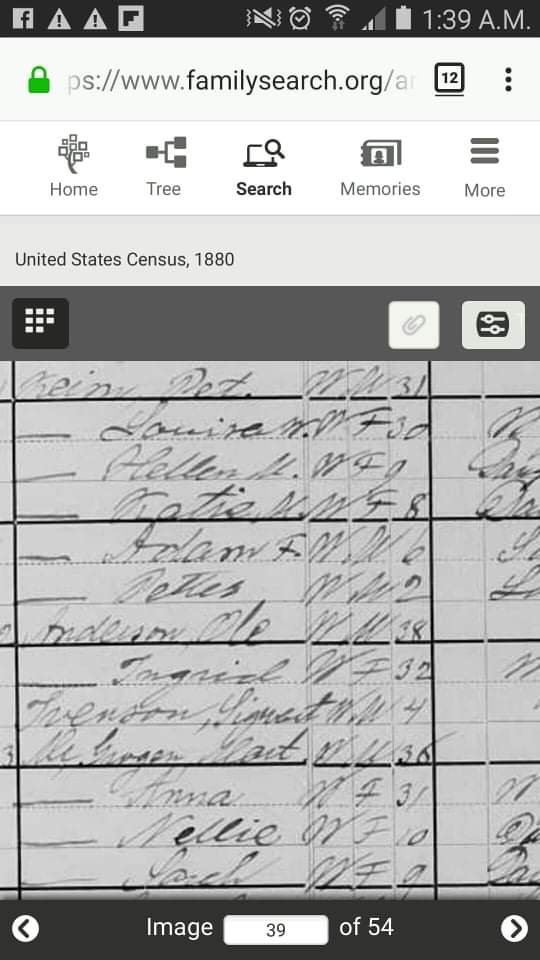 1:39 A.M.
ps://www.familysearch.org/ar
12
Home Tree Search Memories More
United States Census, 1880
Pet. W M 31
— Louisa W F 30
— Hellen M. W F 9
— Katie M. W F 8
— Adam F. W M 6
— Pettes W M 2
Anderson, Ole W M 38
— Ingrid W F 32
W M 4
W M 36
— Anna W F 31
— Nellie W F 10
— Sarah W F 9
Image 39 of 54